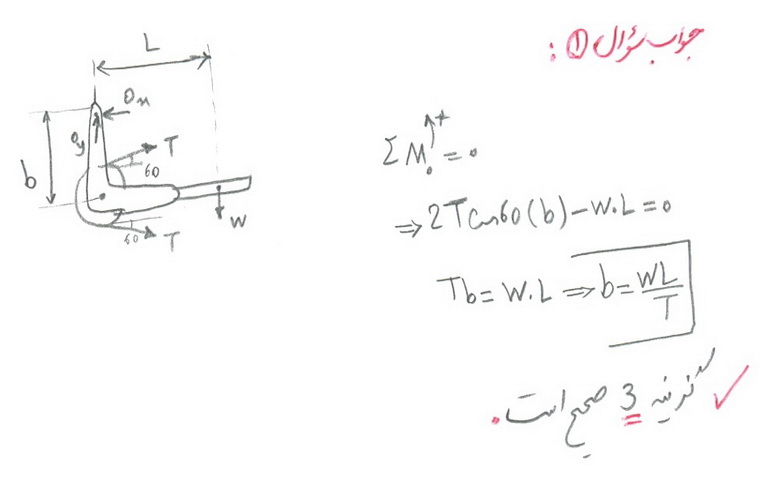 جواب سؤال ①:
L
On
Oy
T
60
b
W
60
T
ΣM₀ = 0
⇒ 2Tcos60(b) - W.L = 0
Tb = W.L ⇒ b = WL/T
گزینه 3 صحیح است.